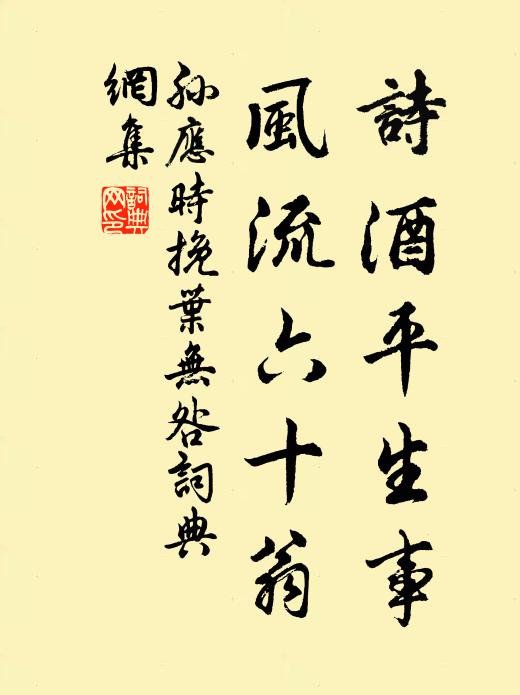 詩酒平生事
風流六十翁
孫應時挽葉無咎詞典
網集
詞典網印